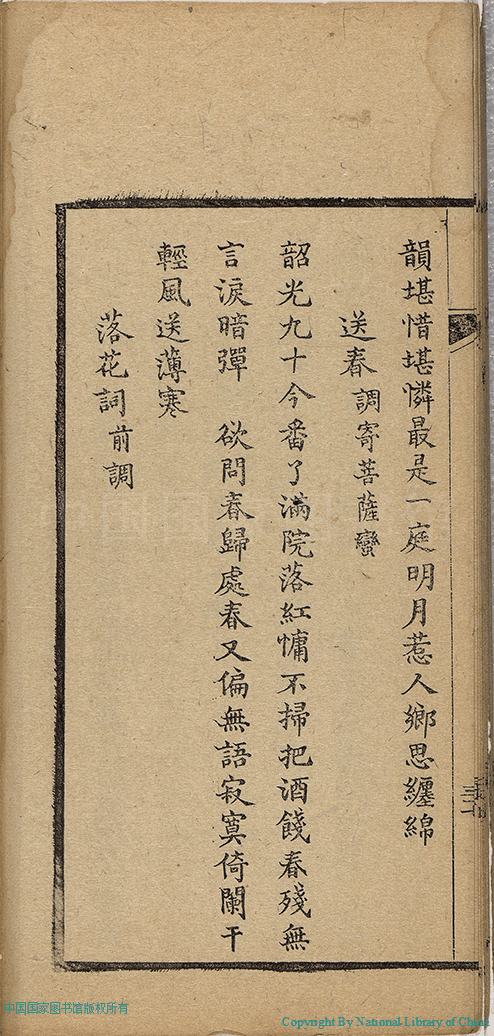 韻堪惜堪憐最是一庭明月惹人鄉思纏綿
送春調寄菩薩蠻
韶光九十今番了滿院落紅慵不掃把酒餞春殘無
言淚暗彈　欲問春歸處春又偏無語寂寞倚闌干
輕風送薄寒
落花詞前調
中国国家图书馆版权所有
Copyright By National Library of China